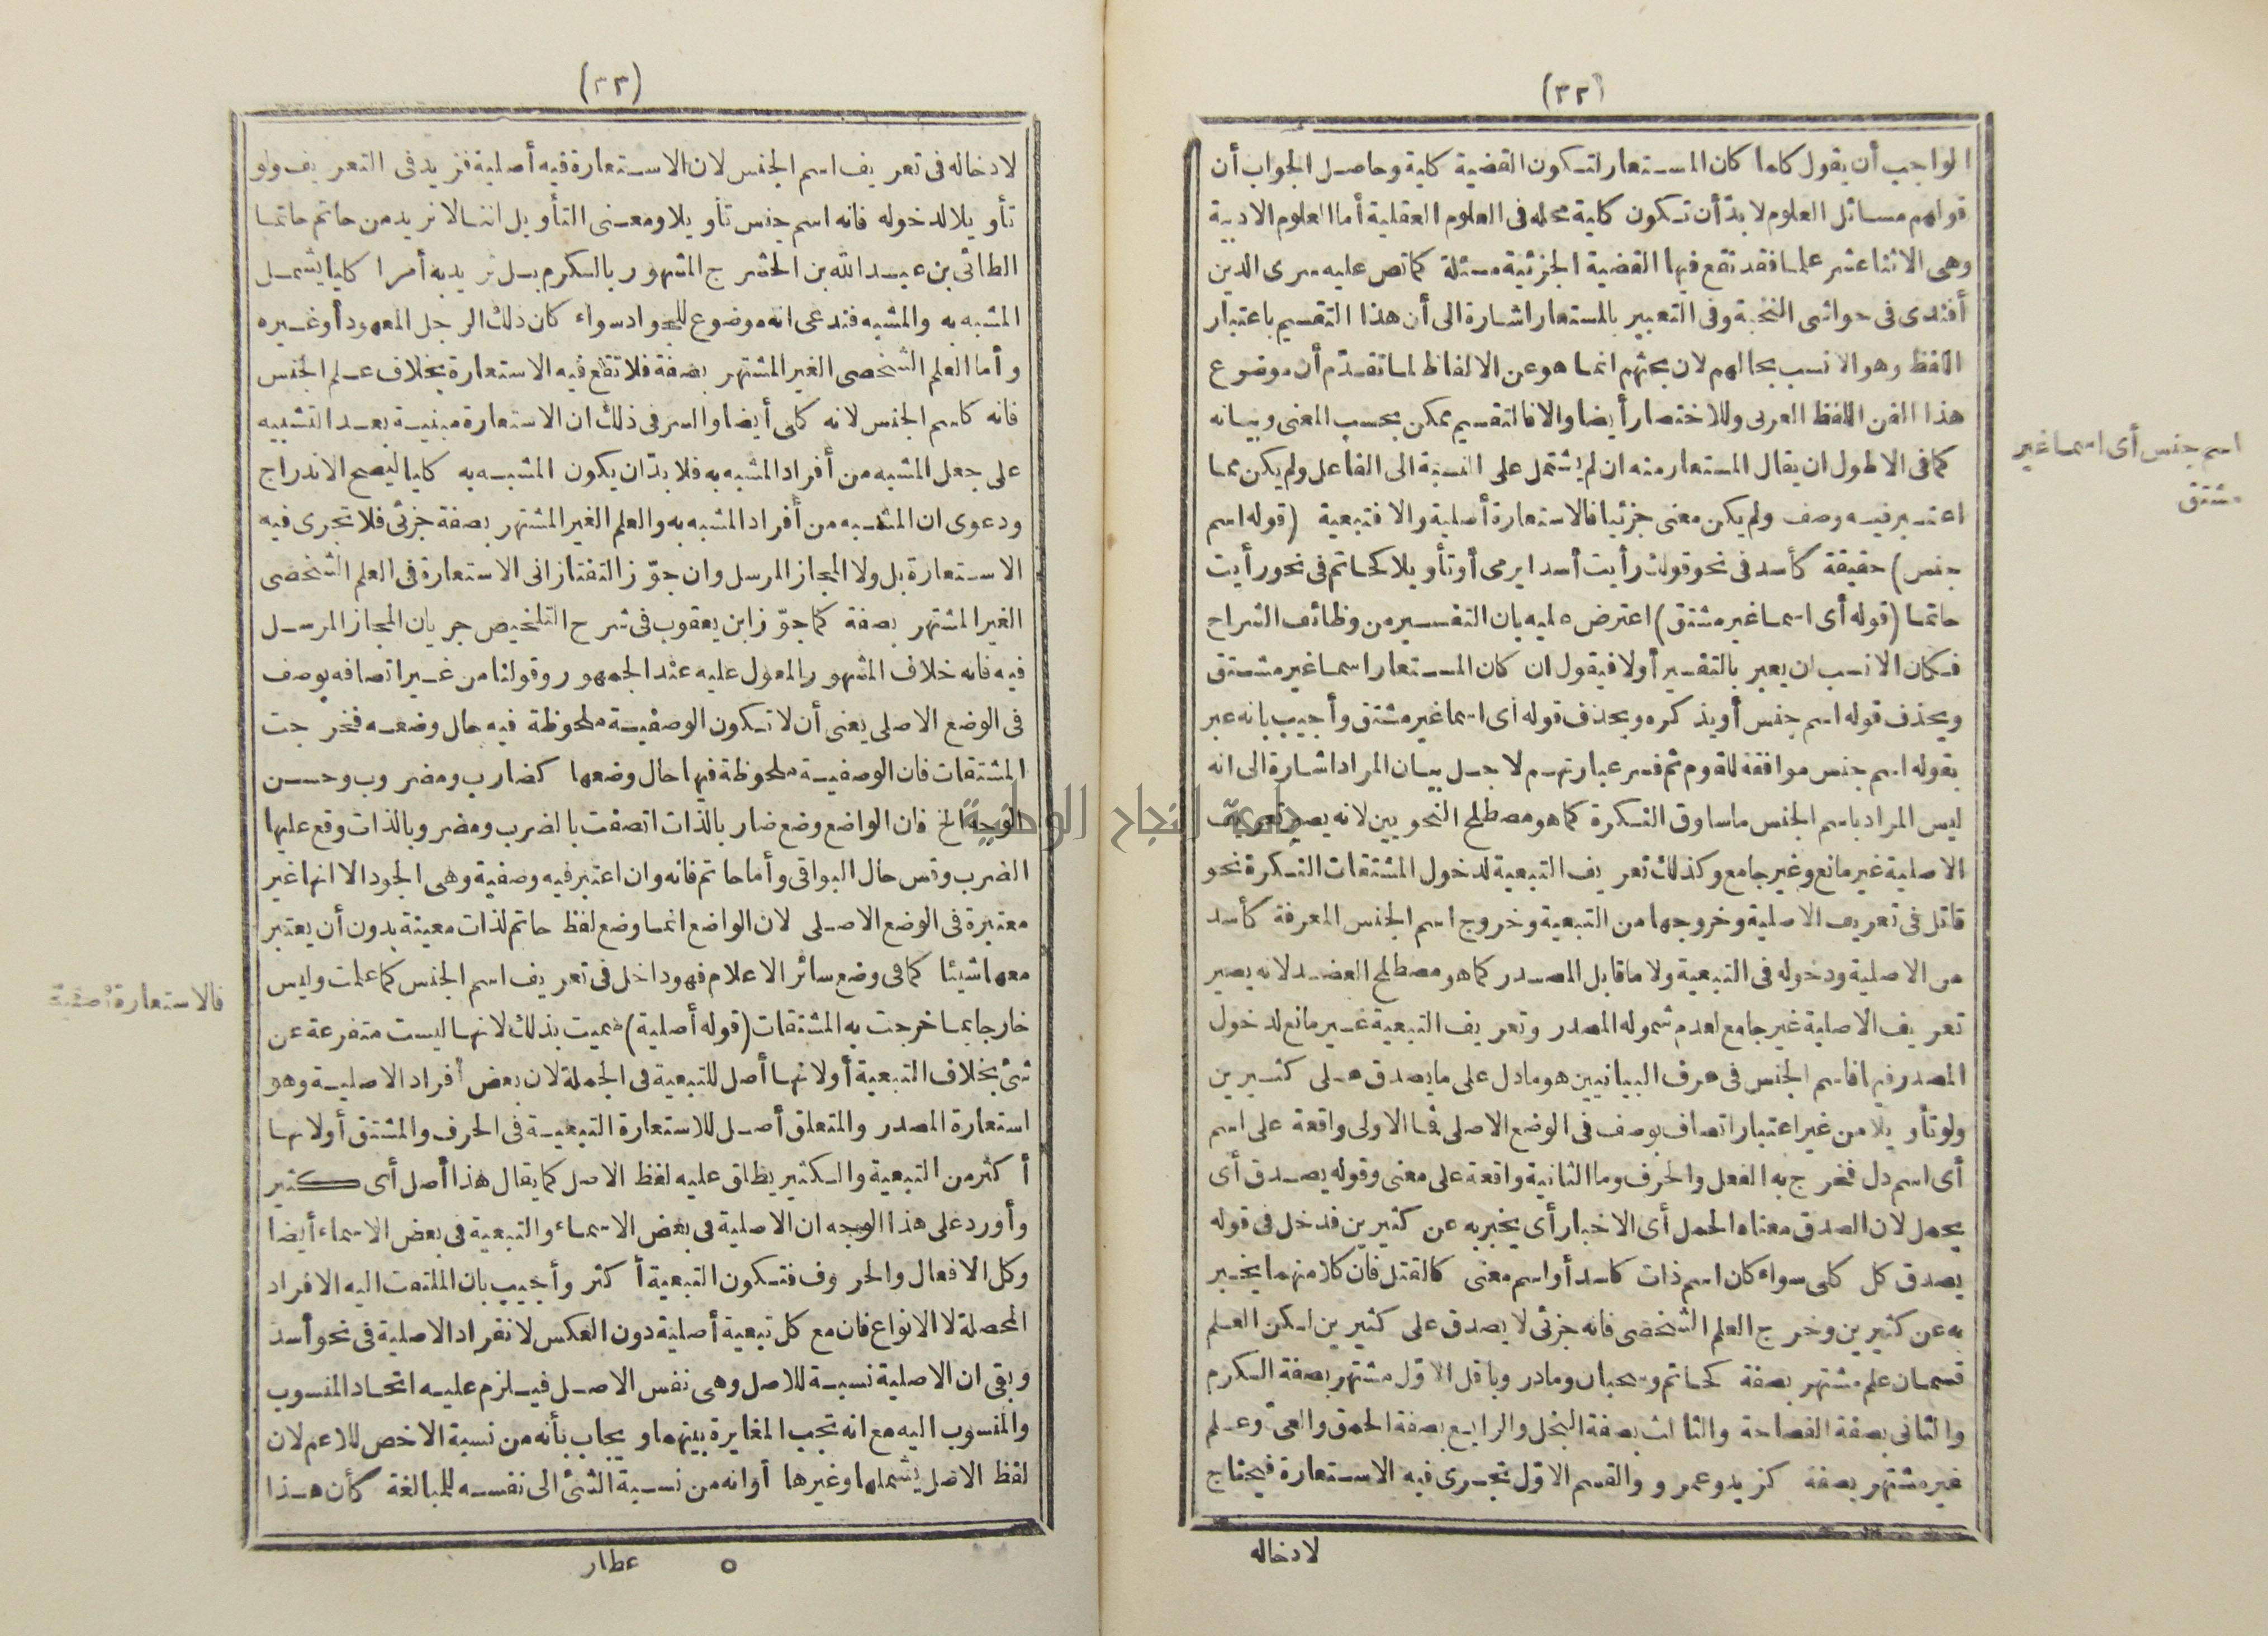 (٣٢)
الواجب أن يقول كلما كان المستعار لتكون القضية كلية وحاصل الجواب أن
قولهم مسائل العلوم لا بدّ أن تكون كلية محله فى العلوم العقلية أما العلوم الادبية
وهى الاثنا عشر علما فقد تقع فيها القضية الجزئية مسئلة كما نص عليه سرى الدين
أفندى فى حواشى النخبة وفى التعبير بالمستعار اشارة الى أن هذا التقسيم باعتبار
اللفظ وهو الانسب بحالهم لان بحثهم انما هو عن الالفاظ لما تقدّم أن موضوع
هذا الفن اللفظ العربى وللاختصار أيضا والا فالتقسيم ممكن بحسب المعنى وبيانه
كما فى الاطول ان يقال المستعار منه ان لم يشتمل على النسبة الى الفاعل ولم يكن مما
اعتبر فيه وصف ولم يكن معنى جزئيا فالاستعارة أصلية والا فتبعية (قوله اسم
جنس) حقيقة كأسد فى نحو قولك رأيت أسدا يرمى أو تأويلا كحاتم فى نحو رأيت
حاتما (قوله أى اسما غير مشتق) اعترض عليه بان التفسير من وظائف الشراح
فكان الانسب ان يعبر بالتفسير أولا فيقول ان كان المستعار اسما غير مشتق
ويحذف قوله اسم جنس أو يذكره ويحذف قوله أى اسما غير مشتق وأجيب بانه عبر
بقوله اسم جنس موافقة للقوم ثم فسر عبارتهم لاجل بيان المراد اشارة الى انه
ليس المراد باسم الجنس ما ساوق النكرة كما هو مصطلح النحويين لانه يصير تعريف
الاصلية غير مانع وغير جامع وكذلك تعريف التبعية لدخول المشتقات النكرة نحو
قاتل فى تعريف الاصلية وخروجها من التبعية وخروج اسم الجنس المعرفة كأسد
من الاصلية ودخوله فى التبعية ولا ما قابل المصدر كما هو مصطلح العضد لانه يصير
تعريف الاصلية غير جامع لعدم شموله المصدر وتعريف التبعية غير مانع لدخول
المصدر فيها فاسم الجنس فى عرف البيانيين هو ما دل على ما يصدق على كثيرين
ولو تأويلا من غير اعتبار اتصاف بوصف فى الوضع الاصلى فما الاولى واقعة على اسم
أى اسم دل فخرج به الفعل والحرف وما الثانية واقعة على معنى وقوله يصدق أى
يحمل لان الصدق معناه الحمل أى الاخبار أى يخبر به عن كثيرين فدخل فى قوله
يصدق كل كلى سواء كان اسم ذات كاسد أو اسم معنى كالقتل فان كلا منهما يخبر
به عن كثيرين وخرج العلم الشخصى فانه جزئى لا يصدق على كثيرين لكن العلم
قسمان علم مشتهر بصفة كحاتم وسحبان ومادر وباقل الاوّل مشتهر بصفة الكرم
والثانى بصفة الفصاحة والثالث بصفة البخل والرابع بصفة الحمق والعىّ وعلم
غير مشتهر بصفة كزيد وعمرو والقسم الاوّل تجرى فيه الاستعارة فيحتاج
لادخاله
اسم جنس أى اسما غير
مشتق
(٣٣)
لادخاله فى تعريف اسم الجنس لان الاستعارة فيه أصلية فزيد فى التعريف ولو
تأويلا لدخوله فانه اسم جنس تأويلا ومعنى التأويل اننا لا نريد من حاتم حاتما
الطائى بن عبد الله بن الحشرج المشهور بالكرم بل نريد به أمرا كليا يشمل
المشبه به والمشبه فندعى انه موضوع للجواد سواء كان ذلك الرجل المعهود أو غيره
وأما العلم الشخصى الغير المشتهر بصفة فلا تقع فيه الاستعارة بخلاف علم الجنس
فانه كاسم الجنس لانه كلى أيضا والسر فى ذلك ان الاستعارة مبنية بعد التشبيه
على جعل المشبه من أفراد المشبه به فلا بدّ ان يكون المشبه به كليا ليصح الاندراج
ودعوى ان المشبه من أفراد المشبه به والعلم الغير المشتهر بصفة جزئى فلا تجرى فيه
الاستعارة بل ولا المجاز المرسل وان جوّز التفتازانى الاستعارة فى العلم الشخصى
الغير المشتهر بصفة كما جوّز ابن يعقوب فى شرح التلخيص جريان المجاز المرسل
فيه فانه خلاف المشهور المعول عليه عند الجمهور وقولنا من غير اتصافه بوصف
فى الوضع الاصلى يعنى أن لا تكون الوصفية ملحوظة فيه حال وضعه فخرجت
المشتقات فان الوصفية ملحوظة فيها حال وضعها كضارب ومضروب وحسن
الوجه الخ فان الواضع وضع ضاربا لذات اتصفت بالضرب ومضروبا لذات وقع عليها
الضرب وقس حال البواقى وأما حاتم فانه وان اعتبر فيه وصفية وهى الجود الا انها غير
معتبرة فى الوضع الاصلى لان الواضع انما وضع لفظ حاتم لذات معينة بدون أن يعتبر
معها شيئا كما فى وضع سائر الاعلام فهو داخل فى تعريف اسم الجنس كما علمت وليس
خارجا بما خرجت به المشتقات (قوله أصلية) سميت بذلك لانها ليست متفرعة عن
شئ بخلاف التبعية أو لانها أصل للتبعية فى الجملة لان بعض أفراد الاصلية وهو
استعارة المصدر والمتعلق أصل للاستعارة التبعية فى الحرف والمشتق أو لانها
أكثر من التبعية والكثير يطلق عليه لفظ الاصل كما يقال هذا أصل أى كثير
وأورد على هذا الوجه ان الاصلية فى بعض الاسماء والتبعية فى بعض الاسماء أيضا
وكل الافعال والحروف فتكون التبعية أكثر وأجيب بان الملتفت اليه الافراد
المحصلة لا الانواع فان مع كل تبعية أصلية دون العكس لانفراد الاصلية فى نحو أسد
وبقى ان الاصلية نسبة للاصل وهى نفس الاصل فيلزم عليه اتحاد المنسوب
والمنسوب اليه مع انه تجب المغايرة بينهما ويجاب بأنه من نسبة الاخص للاعم لان
لفظ الاصل يشملها وغيرها أو انه من نسبة الشئ الى نفسه للمبالغة كأن هذا
٥ عطار
فالاستعارة أصلية
جامعة النجاح الوطنية